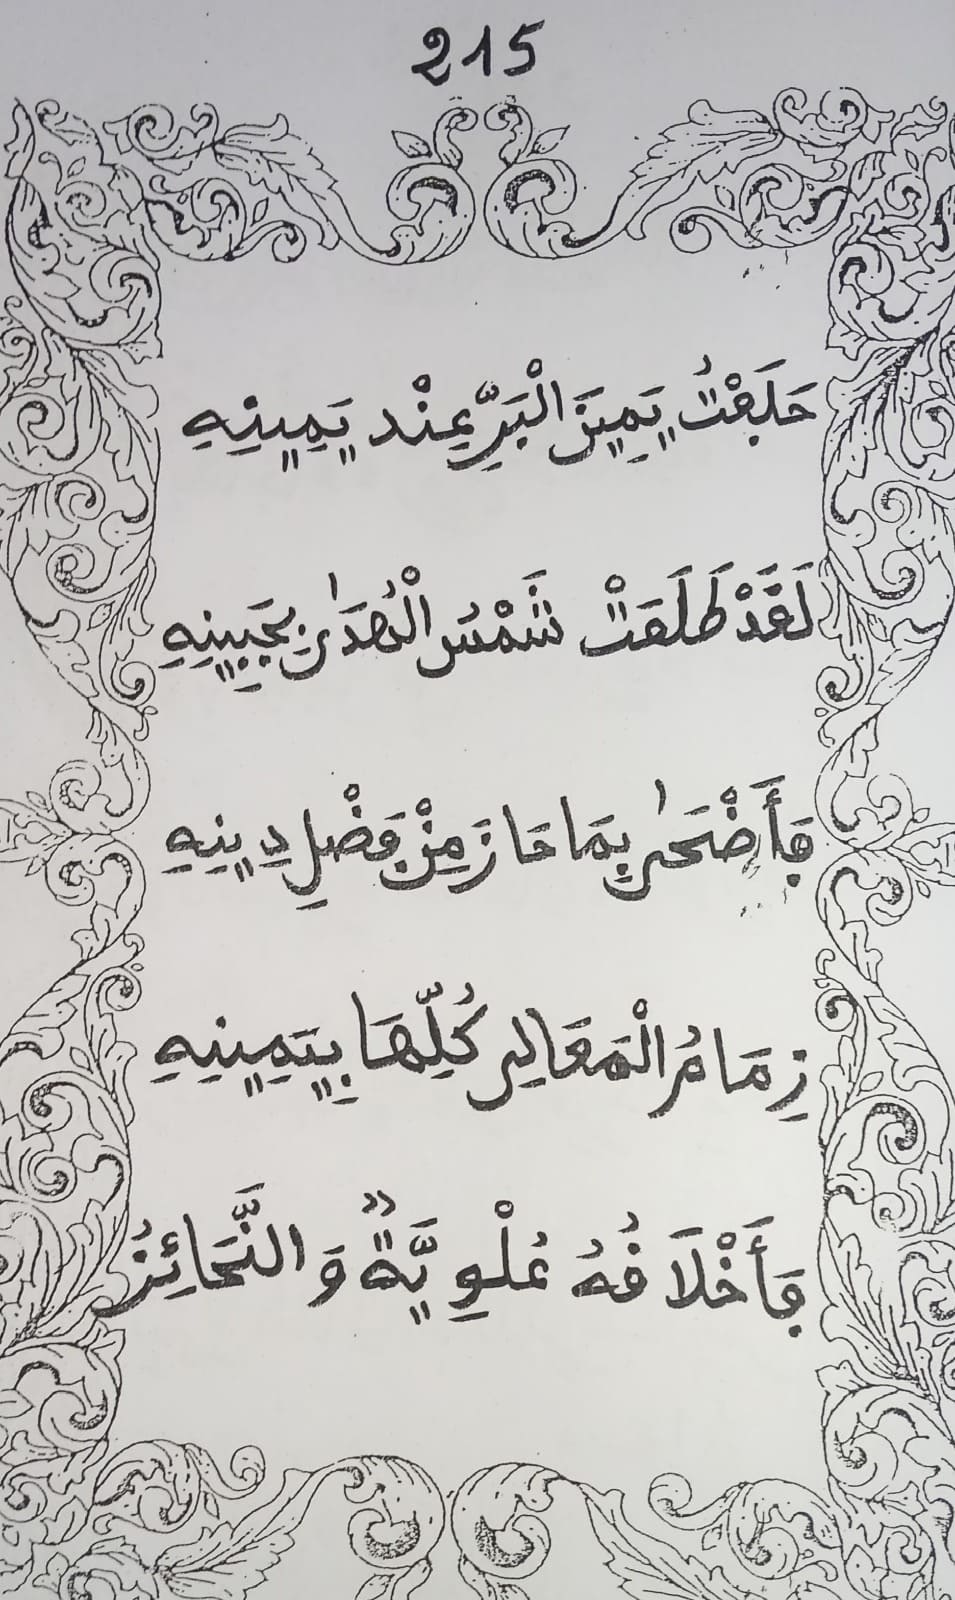 215
حَلَفْتُ يَمِينَ الْبَرِّ عِنْدَ يَمِينِهِ
لَقَدْ طَلَعَتْ شَمْسُ الْهُدَىٰ بِجَبِينِهِ
فَأَضْحَىٰ بِمَا حَازَ مِنْ فَضْلِ دِينِهِ
زِمَامُ الْمَعَالِي كُلِّهَا بِيَمِينِهِ
فَأَخْلَاقُهُ عُلْوِيَّةٌ وَالنَّحَائِزُ